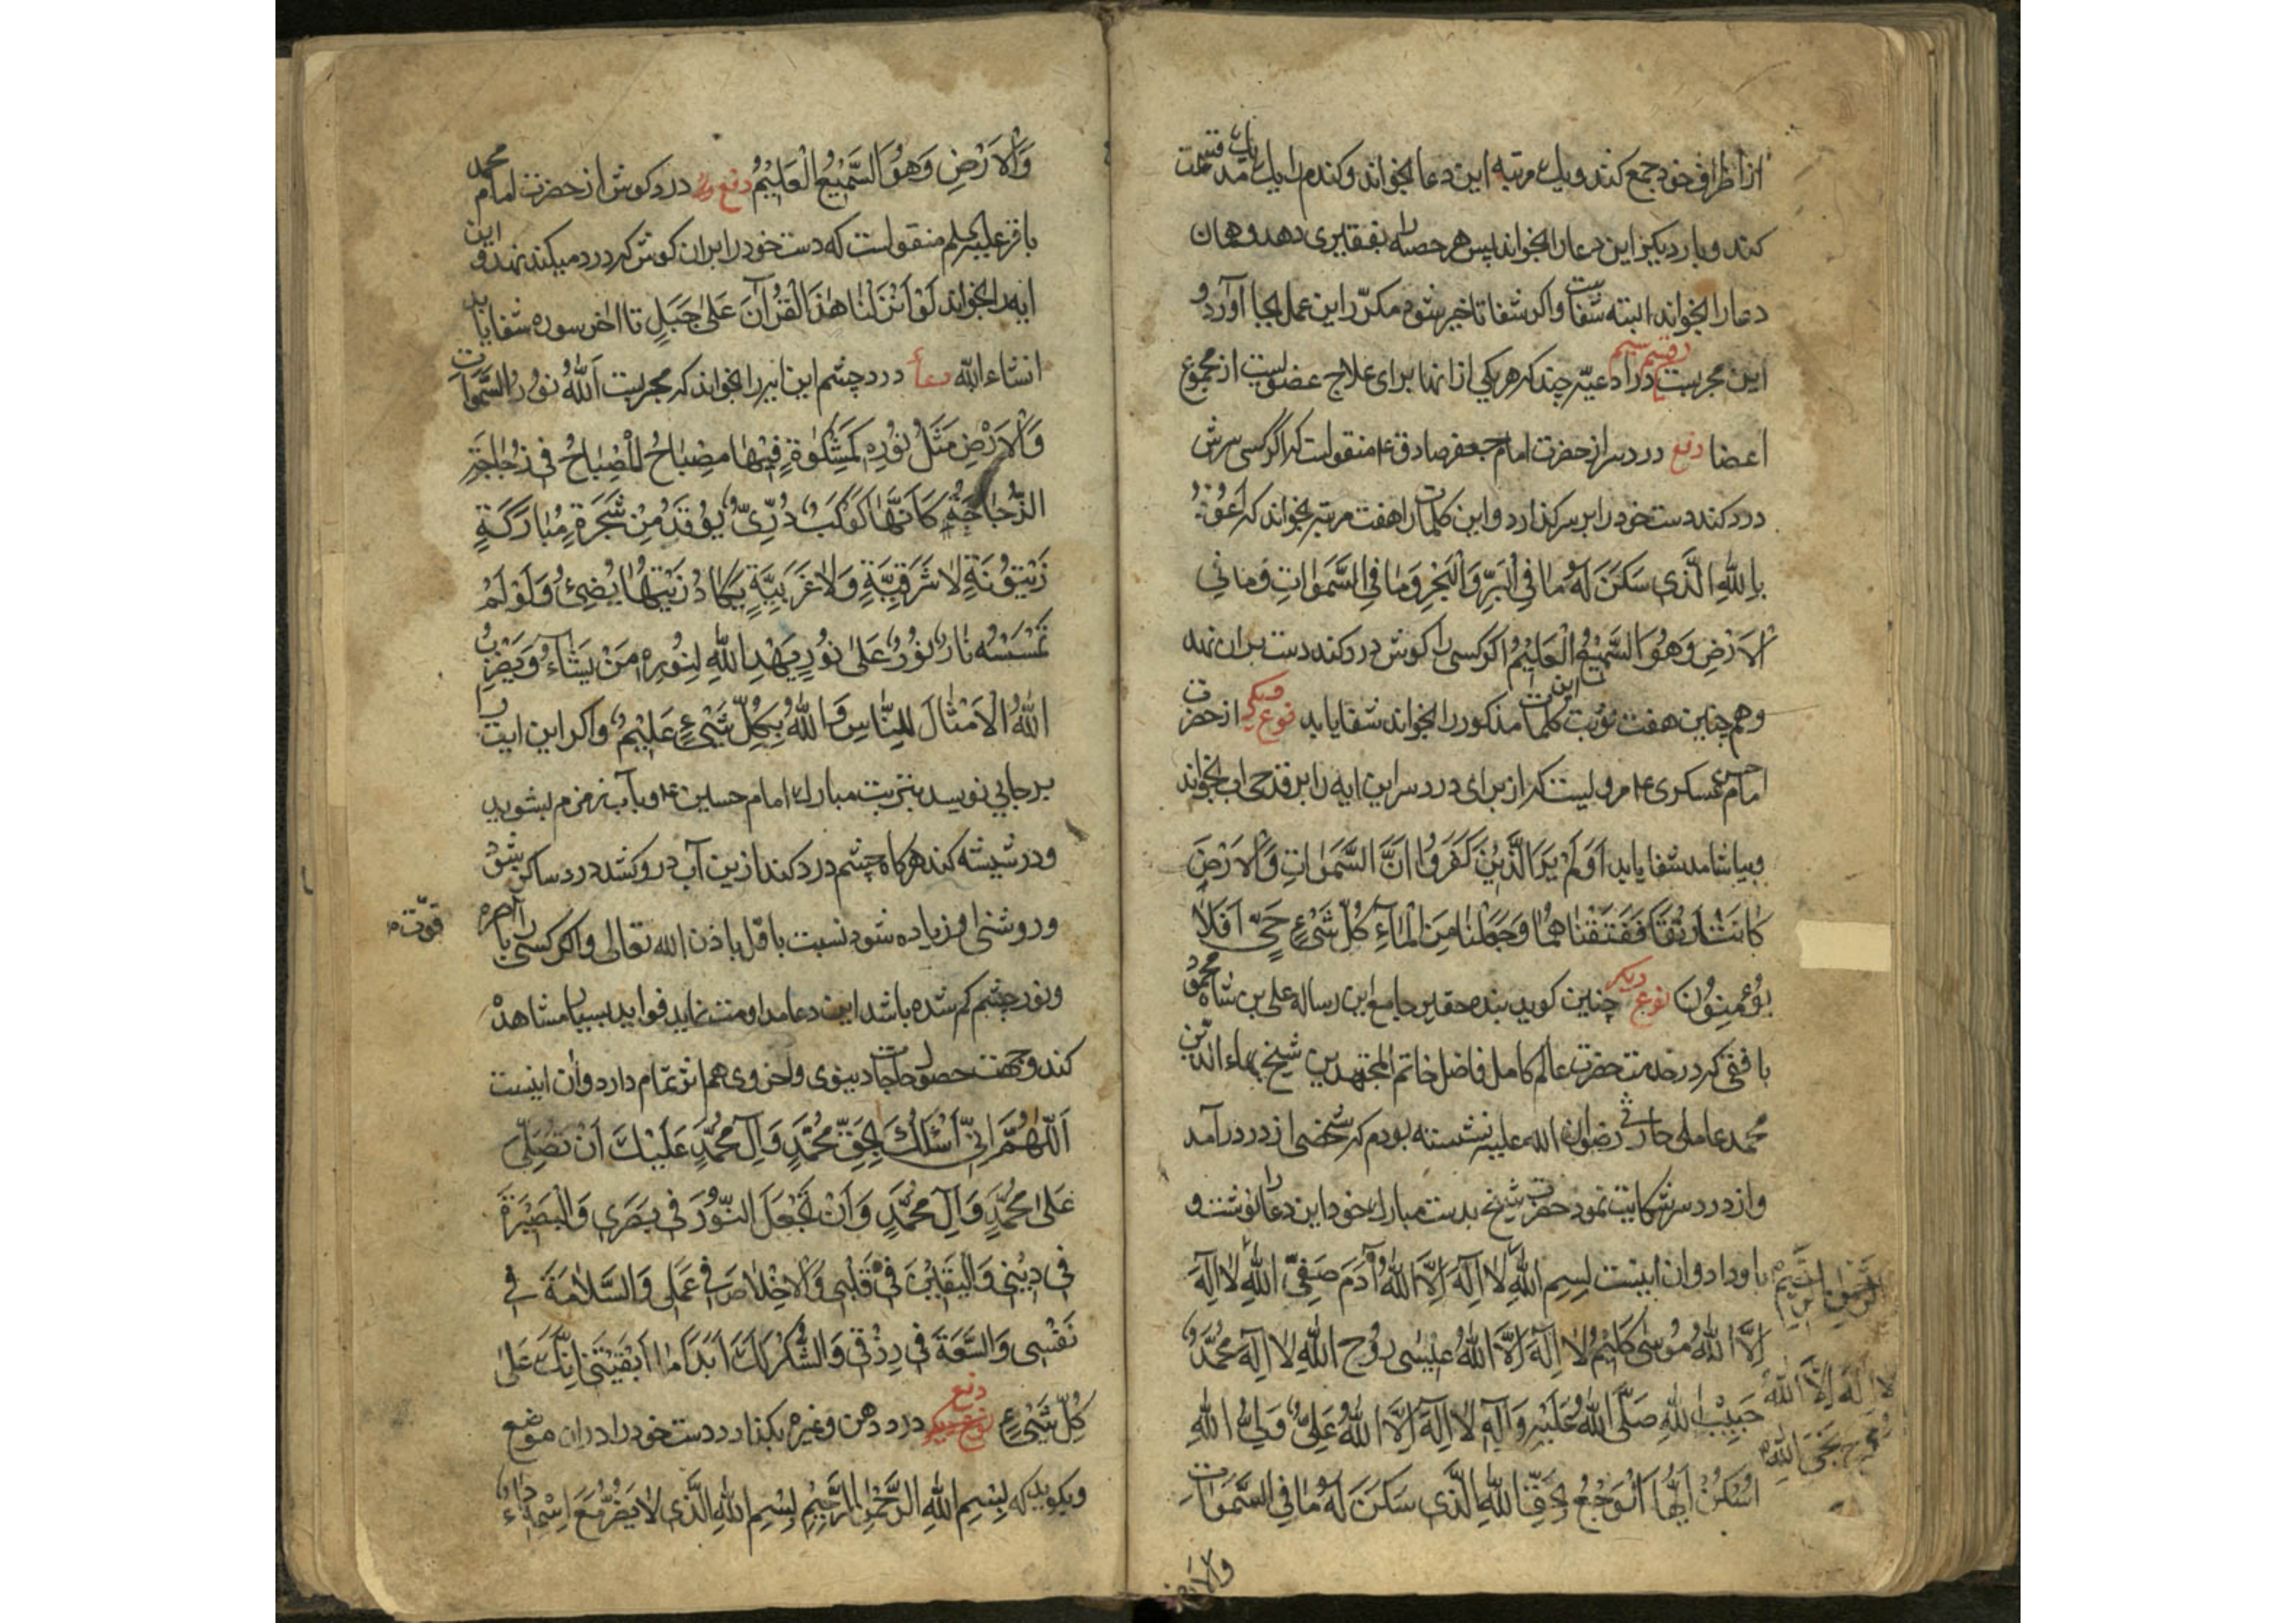 از اطراف خود جمع کند و یک مرتبه این دعا بخواند و گندم را یک یک مد قسمت
کند و بار دیگر این دعا را بخواند پس هر حصه را بفقیری دهد و همان
دعا را بخواند البته شفا یابد و اگر شفا تاخیر شود مکرّر این عمل بجا آورد و
این مجربست رقم سیم در ادعیهٔ چند که هر یکی از انها برای علاج عضویست از مجموع
اعضا دفع درد سر از حضرت امام جعفر صادق ع منقولست که اگر کسی سرش
درد کند دست خود را بر سر گذارد و این کلمات را هفت مرتبه بخواند که اَعُوذُ
بِاللهِ الَّذی سَکَنَ لَهُ مٰا فِی الْبَرِّ وَالْبَحْرِ وَمٰا فِی السَّمٰوٰاتِ وَمٰا فِی
الْاَرْضِ وَهُوَ السَّمیْعُ الْعَلیْمُ اگر کسی را گوش درد کند دست بران نهد
و هم چنین هفت نوبت این کلمات مذکور را بخواند شفا یابد نوع دیگر از حضرت
امام حسن عسکری ع مرویست که از برای درد سر این ایه را بر قدحی اب بخواند
و بیاشامد شفا یابد اَوَلَمْ یَرَ الَّذیْنَ کَفَرُوا اَنَّ السَّمٰوٰاتِ وَالْاَرْضَ
کٰانَتٰا رَتْقًا فَفَتَقْنٰاهُمٰا وَجَعَلْنٰا مِنَ الْمٰاءِ کُلَّ شَیْءٍ حَیٍّ اَفَلٰا
یُؤْمِنُوْنَ نوع دیگر چنین گوید بنده حقیر جامع این رساله علی بن شاه محمود
بافقی که در خدمت حضرت عالم کامل فاضل خاتم المجتهدین شیخ بهاء الدّین
محمد عاملی حارثی رضوان الله علیه نشسته بودم که شخصی از در درآمد
و از درد سر شکایت نمود حضرت شیخ بدست مبارک خود این دعا را نوشت و
باو داد و ان اینست بِسْمِ اللهِ لٰا اِلٰهَ اِلَّا اللهُ آدَمُ صَفِیُّ اللهِ لٰا اِلٰهَ
اِلَّا اللهُ مُوسٰی کَلیْمُ لٰا اِلٰهَ اِلَّا اللهُ عیْسٰی رُوْحُ اللهِ لٰا اِلٰهَ مُحَمَّدٌ
لا اِلٰهَ اِلَّا اللهُ
حَبیْبُ اللهِ صَلَّی اللهُ عَلَیْهِ وَآلِهِ لٰا اِلٰهَ اِلَّا اللهُ عَلِیٌّ وَلِیُّ اللهِ
اُسْکُنْ اَیُّهَا الْوَجْعُ بِحَقِّ اللهِ الَّذی سَکَنَ لَهُ مٰا فِی السَّمٰوٰاتِ
والارض
وَالْاَرْضِ وَهُوَ السَّمیْعُ الْعَلیْمُ دفع درد گوش از حضرت امام محمد
باقر علیه السلم منقولست که دست خود را بران گوش که درد میکند نهد و این
ایه را بخواند لَوْ اَنْزَلْنٰا هٰذَا الْقُرْآنَ عَلٰی جَبَلٍ تا اٰخر سوره شفا یابد
انشاء الله دعاء درد چشم این ایه را بخواند که مجربست اَللهُ نُوْرُ السَّمٰوٰاتِ
وَالْاَرْضِ مَثَلُ نُوْرِهِ کَمِشْکٰوةٍ فیْهٰا مِصْبٰاحٌ اَلْمِصْبٰاحُ فی زُجٰاجَةٍ
الزُّجٰاجَةُ کَاَنَّهٰا کَوْکَبٌ دُرِّیٌّ یُوْقَدُ مِنْ شَجَرَةٍ مُبٰارَکَةٍ
زَیْتُوْنَةٍ لٰا شَرْقِیَّةٍ وَلٰا غَرْبِیَّةٍ یَکٰادُ زَیْتُهٰا یُضیْءُ وَلَوْلَمْ
تَمْسَسْهُ نٰارٌ نُوْرٌ عَلٰی نُوْرٍ یَهْدِی اللهُ لِنُوْرِهِ مَنْ یَشٰاءُ وَیَضْرِبُ
اللهُ الْاَمْثٰالَ لِلنّٰاسِ وَاللهُ بِکُلِّ شَیْءٍ عَلیْمٌ و اگر این ایت را
بر جایی نویسد بتربت مبارک امام حسین ع و بآب زمزم بشوید
و در شیشه کند هر گاه چشم درد کند ازین آب درو کشد درد ساکن شود
و روشنی او زیاده شود نسبت باوّل باذن الله تعالی و اگر کسی را باصره
قوّت
و نور چشم کم شده باشد این دعا مداومت نماید فواید بسیار مشاهده
کند و جهت حصول حاجات دینوی و اخروی هم اثر تمام دارد و ان اینست
اَللّٰهُمَّ اِنّی اَسْئَلُکَ بِحَقِّ مُحَمَّدٍ وَآلِ مُحَمَّدٍ عَلَیْکَ اَنْ تُصَلِّیَ
عَلٰی مُحَمَّدٍ وَآلِ مُحَمَّدٍ وَاَنْ تَجْعَلَ النُّوْرَ فی بَصَری وَالْبَصیْرَةَ
فی دیْنی وَالْیَقیْنَ فی قَلْبی وَالْاِخْلٰاصَ فی عَمَلی وَالسَّلٰامَةَ فی
نَفْسی وَالسَّعَةَ فی رِزْقی وَالشُّکْرَ لَکَ اَبَدًا مٰا اَبْقَیْتَنی اِنَّکَ عَلٰی
کُلِّ شَیْءٍ دفع درد دهن و غیره بگذارد دست خود را دران موضع
و بگوید که بِسْمِ اللهِ الرَّحْمٰنِ الرَّحیْمِ بِسْمِ اللهِ الَّذی لٰا یَضُرُّ مَعَ اِسْمِهِ دٰاءٌ